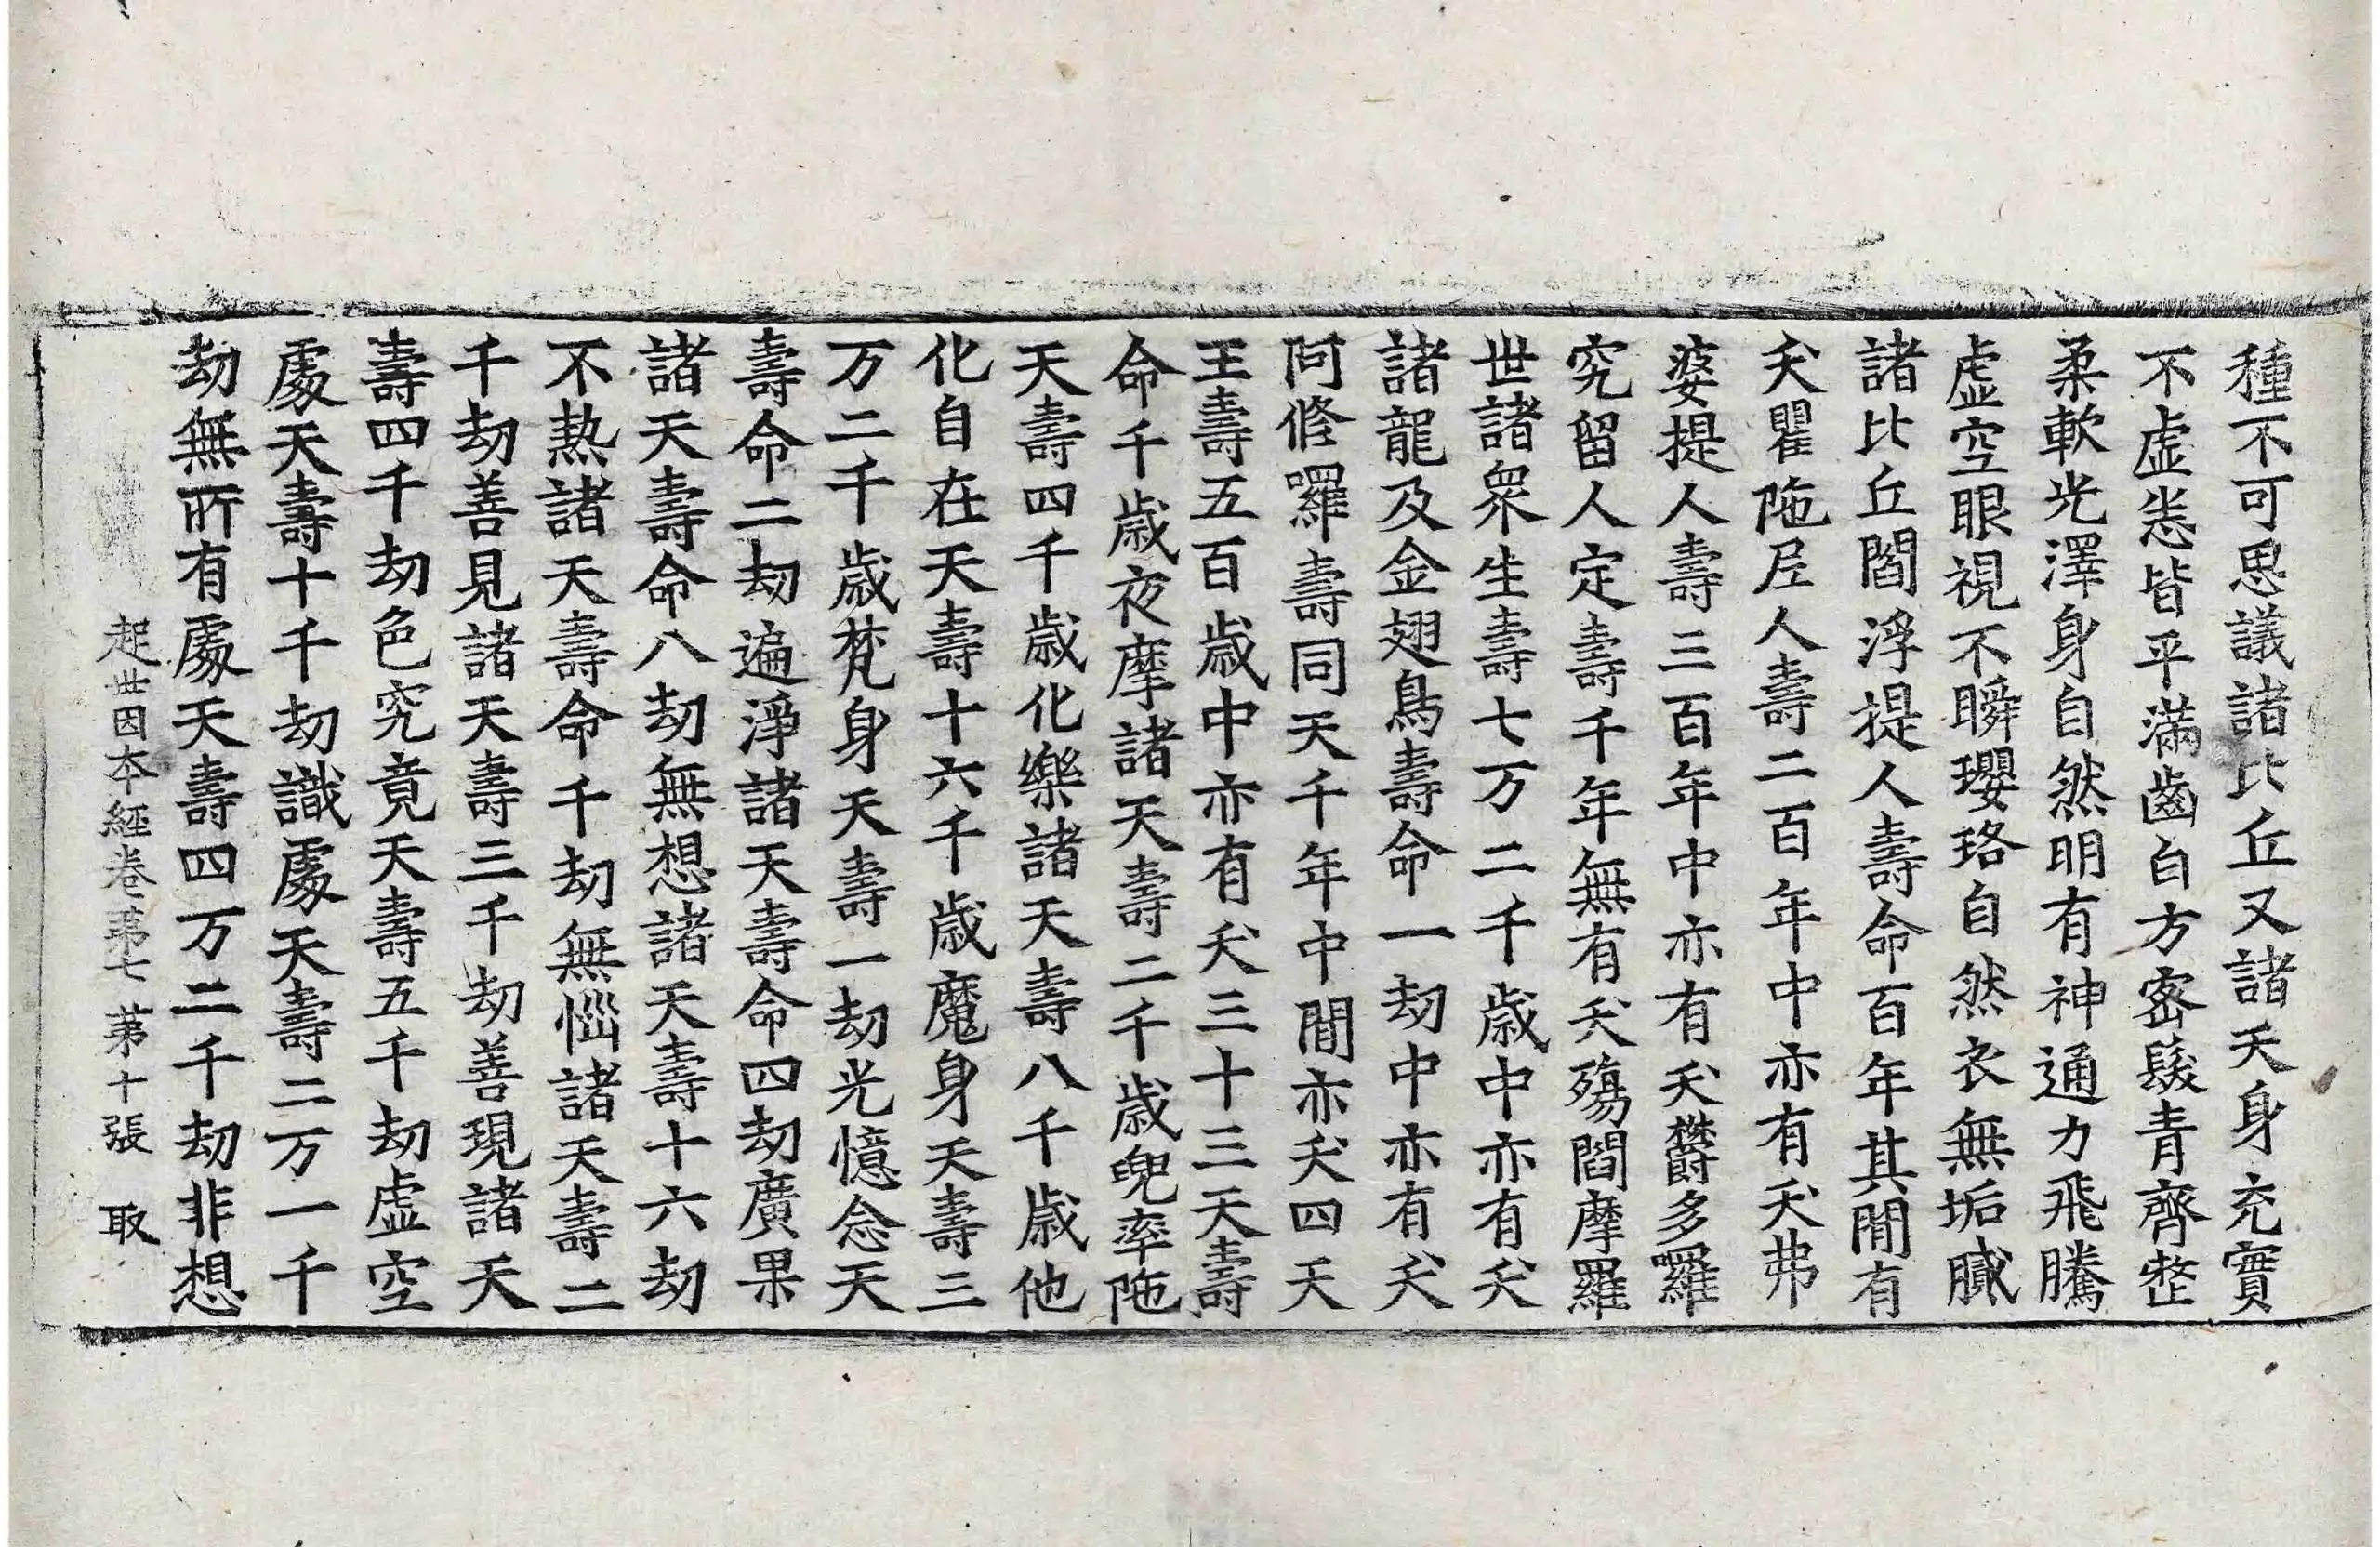 種不可思議諸比丘又諸天身充實
不虛恙皆平滿齒白方密髮青齊整
柔軟光澤身自然明有神通力飛騰
虛空眼視不瞬瓔珞自然衣無垢膩
諸比丘閻浮提人壽命百年其閒有
夭瞿陁尼人壽二百年中亦有夭弗
婆提人壽三百年中亦有夭欝多囉
究留人定壽千年無有夭殤閻摩羅
世諸衆生壽七万二千歲中亦有夭
諸龍及金翅鳥壽命一劫中亦有夭
阿修囉壽同天千年中間亦夭四天
王壽五百歲中亦有夭三十三天壽
命千歲夜摩諸天壽二千歲兜率陁
天壽四千歲化樂諸天壽八千歲他
化自在天壽十六千歲魔身天壽三
万二千歲梵身天壽一劫光憶念天
壽命二劫遍淨諸天壽命四劫廣果
諸天壽命八劫無想諸天壽十六劫
不熱諸天壽命千劫無惱諸天壽二
千劫善見諸天壽三千劫善現諸天
壽四千劫色究竟天壽五千劫虛空
處天壽十千劫識處天壽二万一千
劫無所有處天壽四万二千劫非想
起世因本經卷第七 第十張 取